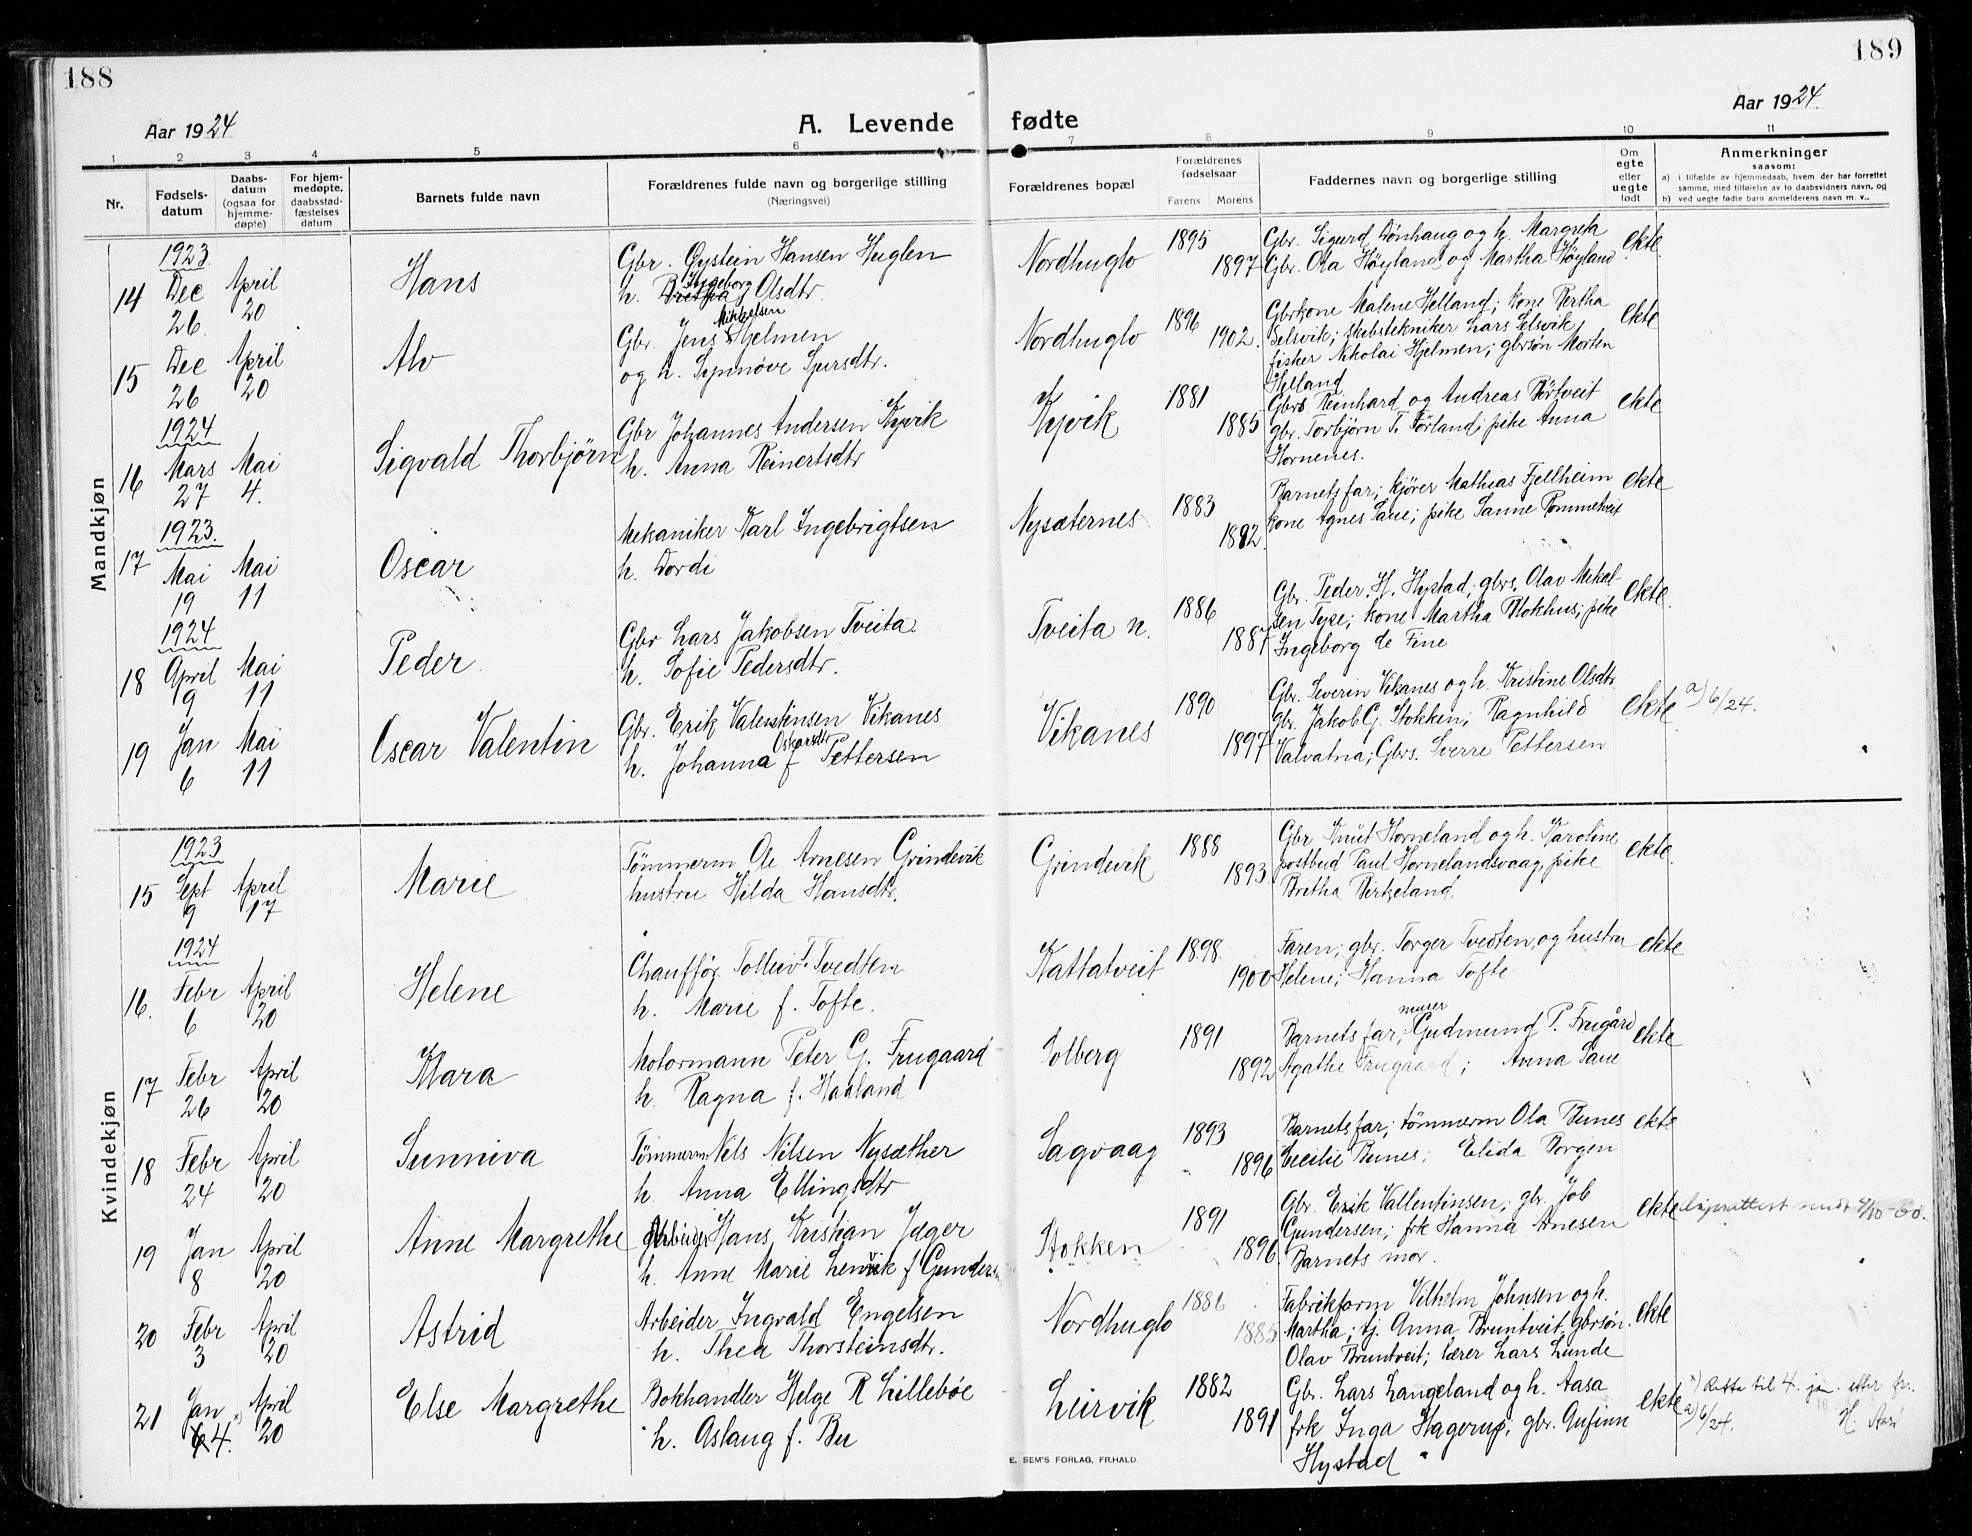 188
189
Aar 1924
A. Levende fødte
Aar 1924.
1 2 3 4 5 6 7 8 9 10 11
Nr.
Fødsels-
datum
Daabs-
datum
(ogsaa for
hjemme-
døpte)
For hjem-
medøpte,
daabsstad-
fæstelses
datum
Barnets fulde navn
Forældrenes fulde navn og borgerlige stilling
(Næringsvei)
Forældrenes bopæl
Forældrenes
fødselsaar
Farens Morens
Faddernes navn og borgerlige stilling
Om
egte
eller
uegte
født
Anmerkninger
saasom:
a) i tilfælde av hjemmedaab, hvem der har forrettet
samme, med tilføielse av to daabsvidners navn, og
b) ved uegte fødte barn anmelderens navn m. v..
Mandkjøn
14
1923
Dec
26
April
20
Hans
Gbr. Øystein Hansen Huglen
h. Britha Ingeborg Olsdtr.
Nordhuglo
1895
1897
Gbr. Sigurd Dønhaug og h. Margreta
Gbr. Ola Høyland og Martha Høyland
ekte
15
Dec
26
April
20
Alv
Gbr. Jens Mikkelsen Hjelmen
og h. Synnøve Sjursdtr.
Nordhuglo
1896
1902.
Gbrkone Malene Helland; kone Bertha
Selsvik; skibstekniker Lars Selsvik
fisker Nikolai Hjelmen; gbrsøn Morten
Helland
ekte
16
1924
Mars
27
Mai
4.
Sigvald Thorbjørn
Gbr Johannes Andersen Kyvik
h. Anna Reinertsdtr
Kyvik
1881
1885
Gbrs Reinhard og Andreas Børtveit
gbr. Torbjørn T. Førland; pike Anna
Hornenes.
ekte
17
1923.
Mai
19
Mai
11
Oscar
Mekaniker Karl Ingebrigtsen
h. Dordi
Nysæternes
1883
1882.
Barnets far; kjører Mathias Fjellheim
kone Agnes Saue; pike Sanne Rommetveit
ekte
18
1924
April
9
Mai
11
Peder
Gbr Lars Jakobsen Tveita.
h. Sofie Pedersdtr.
Tveita n.
1886
1887
Gbr. Peder H. Hystad, gbrs. Olav Mikal-
sen Tyse; kone Martha Blokhus; pike
Ingeborg de Fine
ekte.
19
Jan
6
Mai
11
Oscar Valentin
Gbr. Erik Valentinsen Vikanes
h. Johanna Oskarsdtr f Pettersen
Vikanes
1890
1897
Gbr. Severin Vikanes og h. Kristine Olsdtr.
Gbr. Jakob G. Stokken; Ragnhild
Valvatna; Gbrs. Sverre Pettersen
ekte
a) 6/24.
Kvindekjøn
15
1923
Sept
9
April
17
Marie
Tømmerm Ole Arnesen Grindevik
hustru Hilda Hansdtr.
Grindevik
1888
1893
Gbr Knut Horneland og h. Karoline
postbud Paul Hornelandsvaag, pike
Britha Birkeland
ekte
16.
1924
Febr
6
April
20
Helene
Chauffør Tolleiv T Tvedten
h. Marie f. Tofte.
Kattatveit
1898.
1900
Faren; gbr. Torger Tvedten, og hustru
Helene; Hanna Tofte
ekte
17
Febr
26
April
20
Klara
Motormann Peter G. Frugaard
h. Ragna f. Haaland
Solberg
1891
1892
Barnets far; murer Gudmund P. Frugård
Agathe Frugaard; Anna Saue
ekte
18
Febr
24
April
20
Sunniva
Tømmerm Nels Nilsen Nysæther
h. Anna Ellingsdtr
Sagvaag
1893
1896
Barnets far; tømmerm Ola Bunes
Cecilie Bunes; Elida Borgen
ekte
19
Jan
8
April
20
Anne Margrethe
Arbeider Hans Kristian Jæger
h. Anne Marie Lervik f Gundersen
Stokken
1891
1896.
Gbr. Erik Vallentinsen; gbr. Job
Gundersen; frk Hanna Arnesen
Barnets mor.
ekte
20
Febr
3
April
20
Astrid
Arbeider Ingvald Engelsen
h. Thea Thorsteinsdtr.
Nordhuglo
1886
1885
Fabrikform Vilhelm Johnsen og h.
Martha; tj. Anna Bruntveit, gbrsøn.
Olav Bruntveit; lærer Lars Lunde
ekte
21
Jan
4.
April
20
Else Margrethe
Bokhandler Helge R Lillebøe
h. Aslaug f. Bu
Leirvik
1882
1891
Gbr. Lars Langeland og h. Aasa
frk Inga Hagerup; gbr. Anfinn
Hystad
ekte
x) Rettet til 4. jan. etter
a) 6/24.
E. SEM'S FORLAG, FR.HALD.